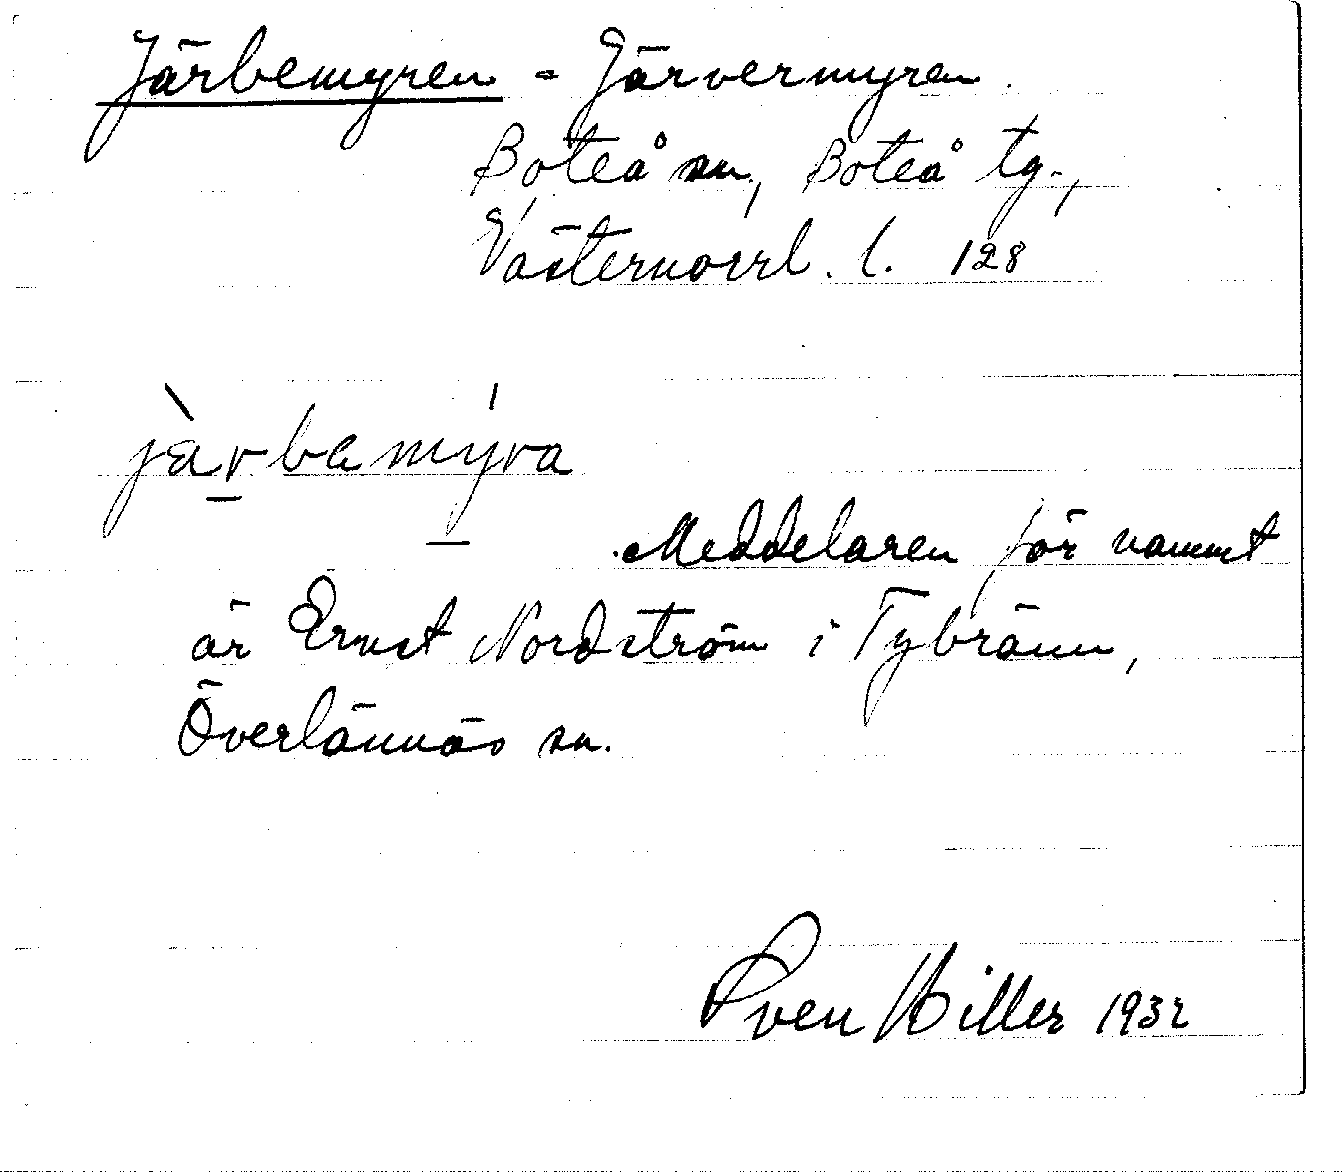 Järbemyren = Järvermyren.
Boteå sn, Boteå tg.,
Västernorrl. l. 128
jàrbamýra
Meddelaren för namnet
är Ernst Nordström i Tybränn,
Överlännäs sn.
Sven Hiller 1932